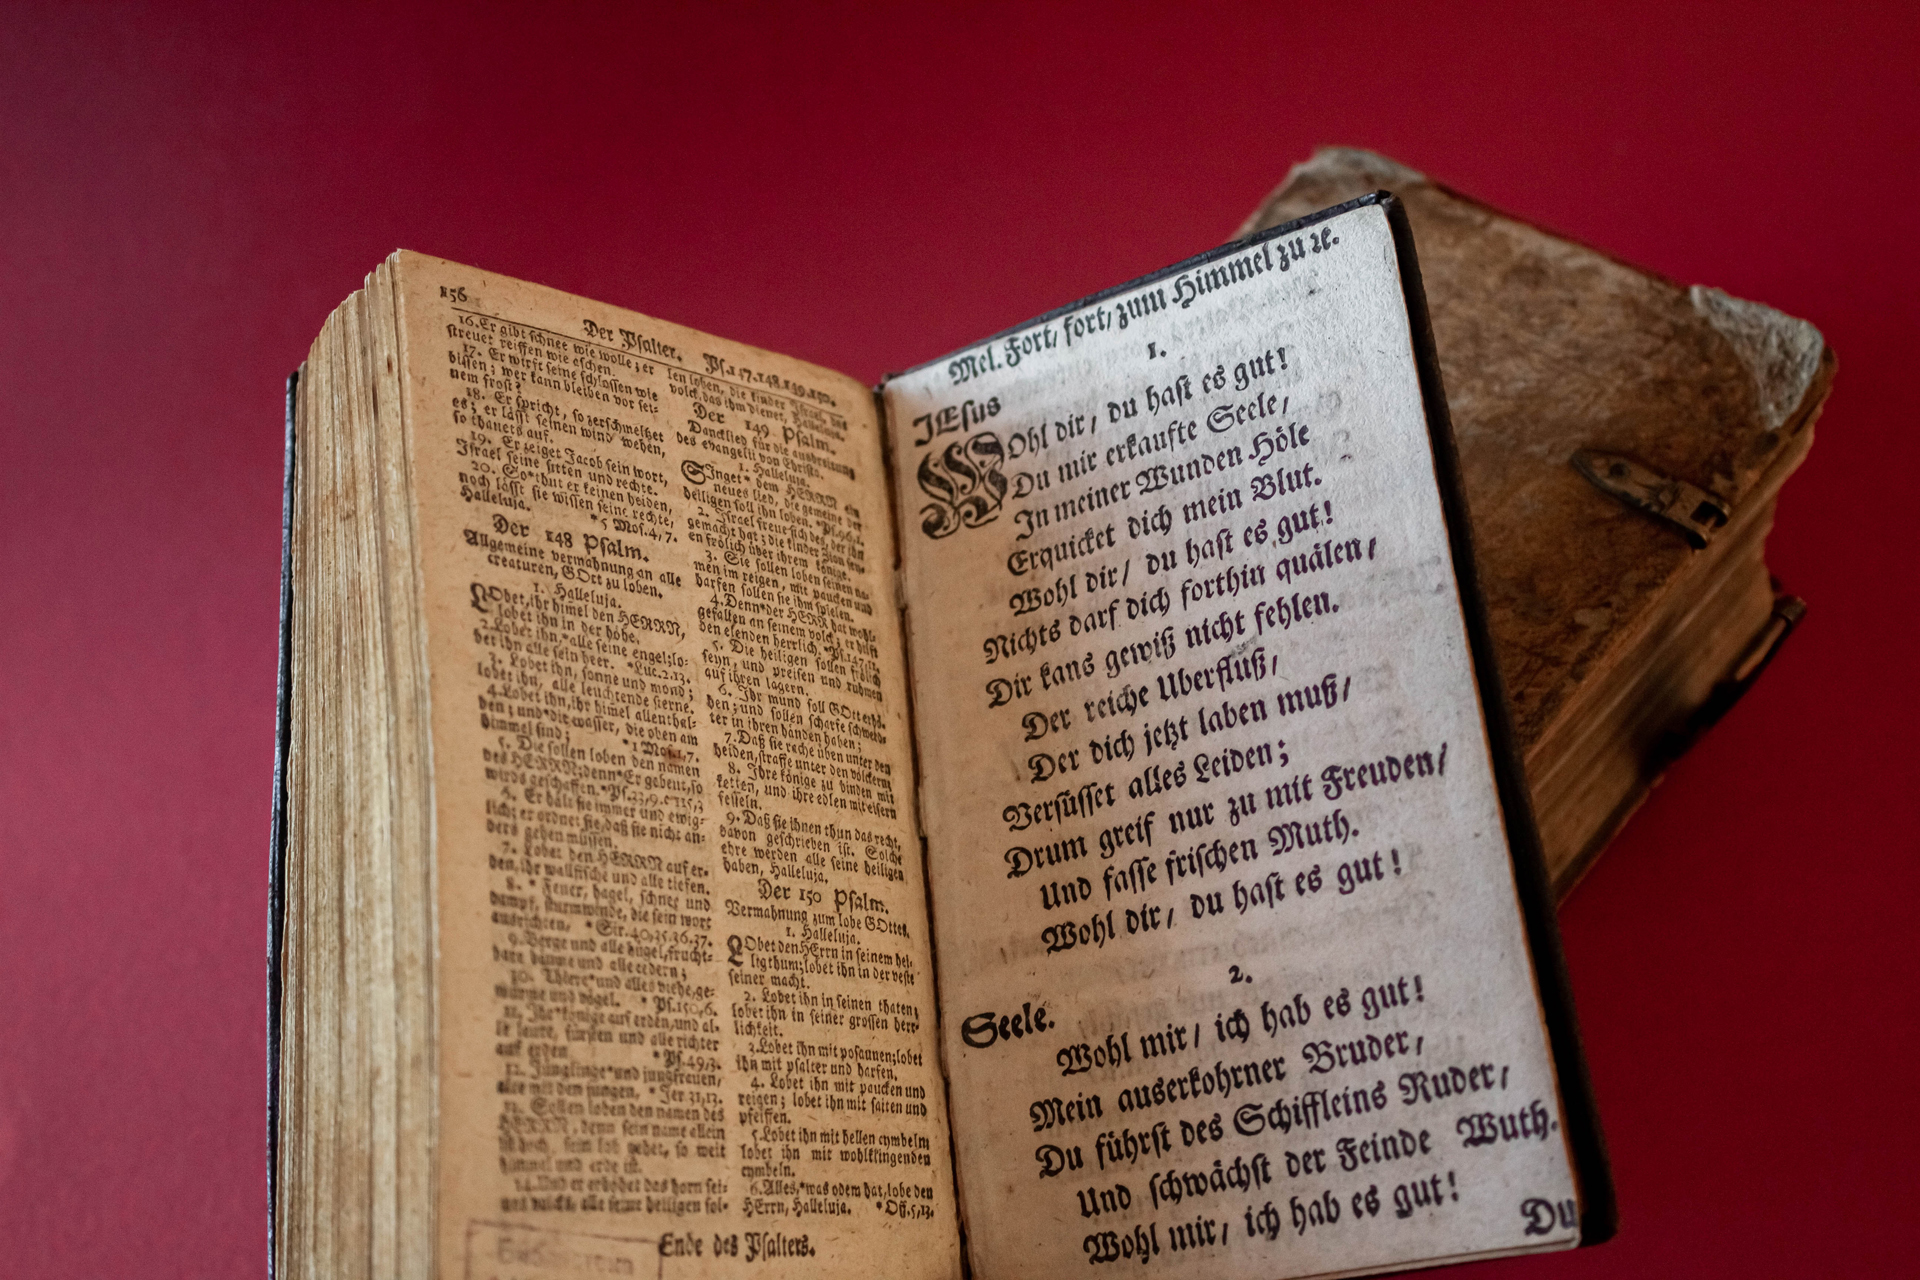 156
Der Psalter. Ps.147.148.149.150.
16. Er gibt schnee wie wolle; er
streuet reiffen wie aschen.
17. Er wirft seine schlossen wie
bissen; wer kan bleiben vor sei-
nem frost?
18. Er spricht, so zerschmeltzet
es; er lässt seinen wind wehen,
so thauets auf.
19. Er zeiget Jacob sein wort,
Israel seine sitten und rechte.
20. So *thut er keinen heiden,
noch lässt sie wissen seine rechte,
Halleluja. *5 Mos.4,7.
Der 148 Psalm.
Allgemeine vermahnung an alle
creaturen, GOtt zu loben.
1. Halleluja.
LObet, ihr himel den HERRN,
lobet ihn in der höhe.
2. Lobet ihn, *alle seine engel; lo-
bet ihn alle sein heer. *Luc.2.13.
3. Lobet ihn, sonne und mond;
lobet ihn, alle leuchtende sterne.
4. Lobet ihn, ihr himel allenthal-
ben; und *die wasser, die oben am
himmel sind; *1 Mos.1,7.
5. Die sollen loben den namen
des HERRN; denn *Er gebeut, so
wirds geschaffen. *Ps.33,9.
6. Er hält sie immer und ewig-
lich; er ordnet sie, daß sie nicht an-
ders gehen müssen.
7. Lobet den HERRN auf er-
den, ihr wallfische und alle tiefen.
8. * Feuer, hagel, schnee und
dampf, sturmwinde, die sein wort
ausrichten, * Sir.40,35.36.37.
9. Berge und alle hügel, frucht-
bare bäume und alle cedern;
10. Thiere *und alles viehe, ge-
würme und vögel. * Ps.150,6.
11. Ihr *könige auf erden, und al-
le leute, fürsten und alle richter
auf erden *Ps.49,3.
12. Jünglinge *und jungfrauen,
alte mit den jungen, * Jer 31,13.
13. Sollen loben den namen des
HERRN, denn sein name allein
ist hoch, sein lob gehet, so weit
himmel und erde ist.
14. Und er erhöhet das horn sei-
nes volcks, alle seine heiligen sol-
len loben, die kinder Israel, das
volck, das ihm dienet, Halleluja.
Der 149 Psalm.
Dancklied für die ausbreitung
des evangelii von Christo.
1. Halleluja.
SInget* dem HERRN ein
neues lied, die gemeine der
heiligen soll ihn loben. *Ps.96,1.
2. Israel freue sich des, der ihn
gemacht hat; die kinder Zion seyn-
en frölich über ihrem könige.
3. Sie sollen loben seinen na-
men im reigen, mit paucken und
harfen sollen sie ihm spielen.
4. Denn *der HERR hat wohl-
gefallen an seinem volck; er hilft
den elenden herrlich. *Ps.147,11.
5. Die heiligen sollen frölich
seyn, und preisen und rühmen
auf ihren lagern.
6. Ihr mund soll GOtt erhö-
hen; und sollen scharfe schwerd-
ter in ihren händen haben;
7. Daß sie rache üben unter den
heiden, straffe unter den völckern;
8. Ihre könige zu binden mit
ketten, und ihre edlen mit eisern
fesseln.
9. Daß sie ihnen thun das recht,
davon geschrieben ist. Solche
ehre werden alle seine heiligen
haben, Halleluja.
Der 150 Psalm.
Vermahnung zum lobe GOttes.
1. Halleluja.
LObet den HErrn in seinem hei-
ligthum; lobet ihn in der veste
seiner macht.
2. Lobet ihn in seinen thaten;
lobet ihn in seiner grossen herr-
lichkeit.
3. Lobet ihn mit posaunen; lobet
ihn mit psalter und harfen.
4. Lobet ihn mit paucken und
reigen; lobet ihn mit saiten und
pfeiffen.
5. Lobet ihn mit hellen cymbeln;
lobet ihn mit wohlklingenden
cymbeln.
6. Alles, *was odem hat, lobe den
HErrn, Halleluja. *Off.5,13.
Ende des Psalters.
Mel. Fort/ fort/ zum Himmel zu ꝛc.
1.
JEsus
WOhl dir/ du hast es gut!
Du mir erkaufte Seele/
In meiner Wunden Höle
Erquicket dich mein Blut.
Wohl dir/ du hast es gut!
Nichts darf dich forthin quälen/
Dir kans gewiß nicht fehlen.
Der reiche Uberfluß/
Der dich jetzt laben muß/
Versüsset alles Leiden;
Drum greif nur zu mit Freuden/
Und fasse frischen Muth.
Wohl dir/ du hast es gut!
2.
Seele.
Wohl mir/ ich hab es gut!
Mein auserkohrner Bruder/
Du führst des Schiffleins Ruder/
Und schwächst der Feinde Wuth.
Wohl mir/ ich hab es gut!
Du